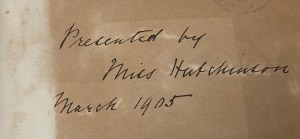 Presented by
Miss Hutchinson
March 1905